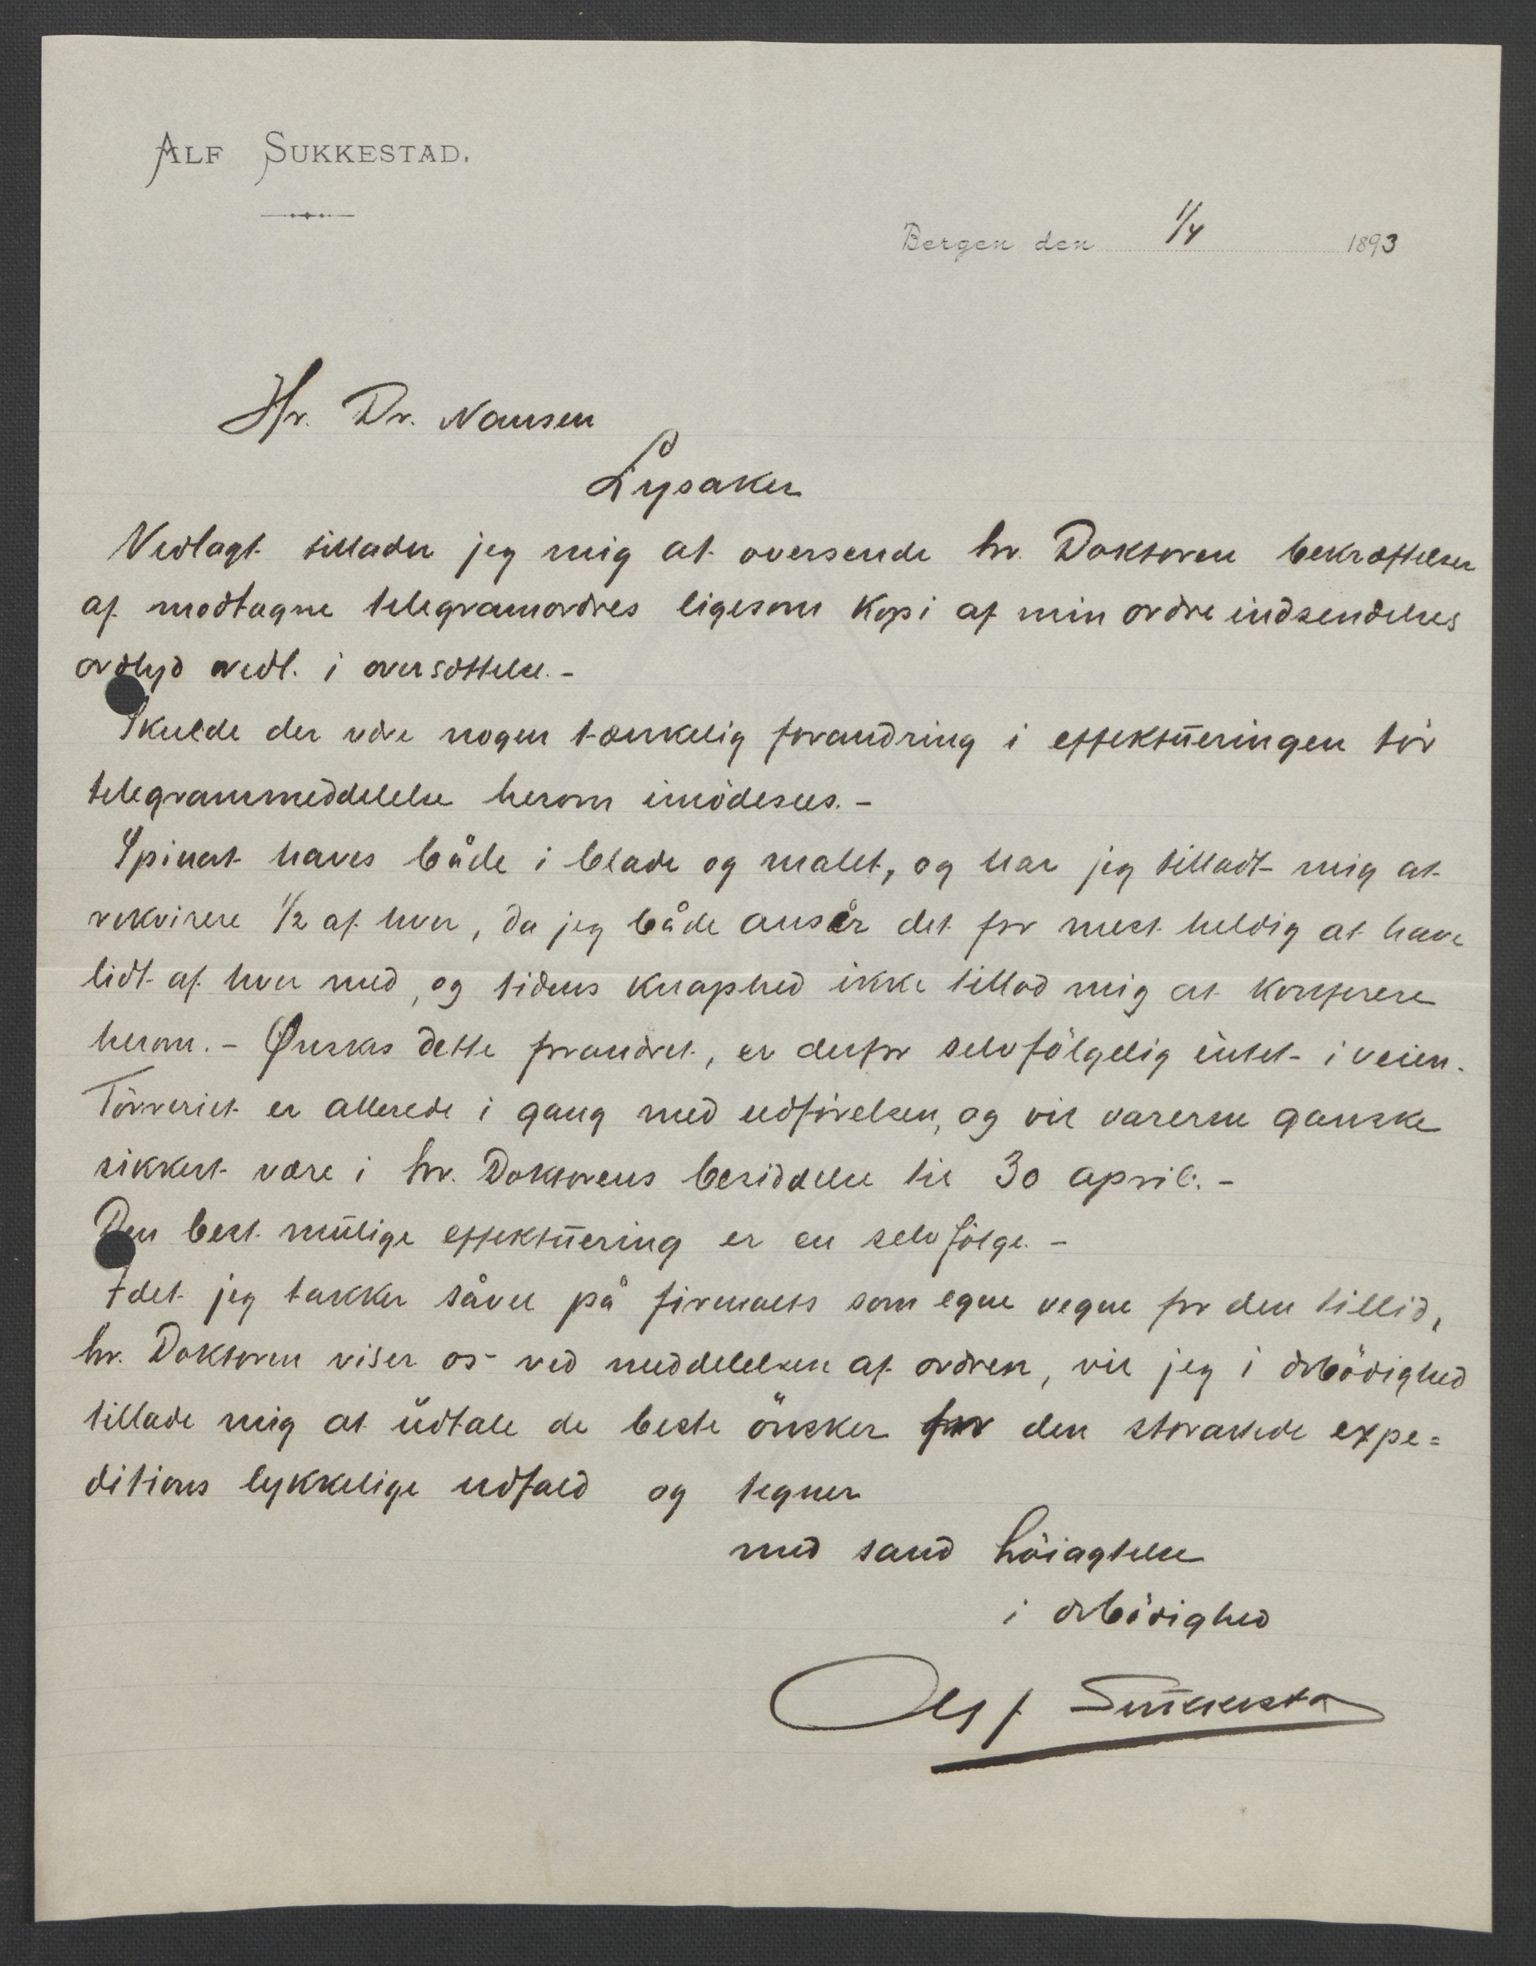 ALF SUKKESTAD.
Bergen den 1/4 1893
Hr. Dr. Nansen
Lysaker
Vedlagt tillader jeg mig at oversende hr. Doktoren bekræftelsen
af modtagne telegramordres ligesom kopi af min ordreindsendelses
ordlyd vedl. i oversættelse. -
Skulde der være nogen tænkelig forandring i effektueringen tör
telegrammeddelelse herom imödesees. -
Spinat haves både i blade og malet, og har jeg tilladt mig at
rekvirere 1/2 af hver, da jeg både ansér det for mest heldig at have
lidt af hver med, og tidens knaphed ikke tillod mig at konferere
herom. - Ønskes dette forandret, er derfor selvfölgelig intet i veien.
Törreriet er allerede i gang med udförelsen, og vil varerne ganske
sikkert være i hr. Doktorens besiddelse til 30 april. -
Den best mulige effektuering er en selvfölge. -
Idet jeg takker såvel på firmaets som egne vegne for den tillid,
hr. Doktoren viser os ved meddelelsen af ordren, vil jeg i ærbödighed
tillade mig at udtale de beste önsker for den storartede expe=
ditions lykkelige udfald og tegner
med sand höiagtelse
i ærbödighed
Alf Sukkestad